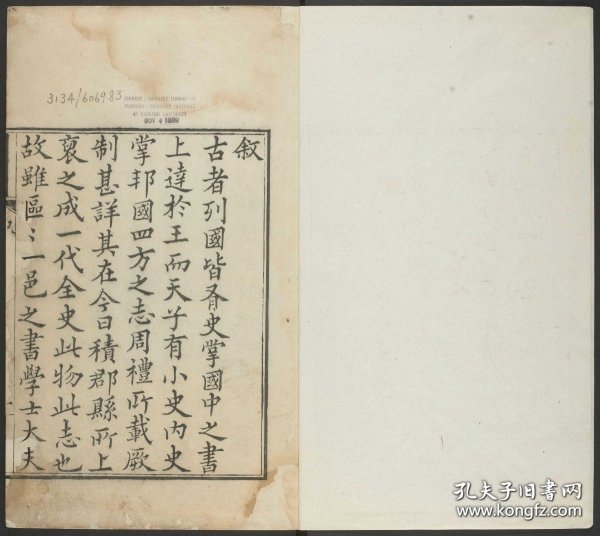 3134/6069.83
CHINESE-JAPANESE LIBRARY OF
HARVARD-YENCHING INSTITUTE
AT HARVARD UNIVERSITY
NOV 4 1939
敘
古者列國皆有史掌國中之書
上達於王而天子有小史內史
掌邦國四方之志周禮所載厥
制甚詳其在今日積郡縣所上
裒之成一代全史此物此志也
故雖區〻一邑之書學士大夫
孔夫子旧书网
www.kongfz.com